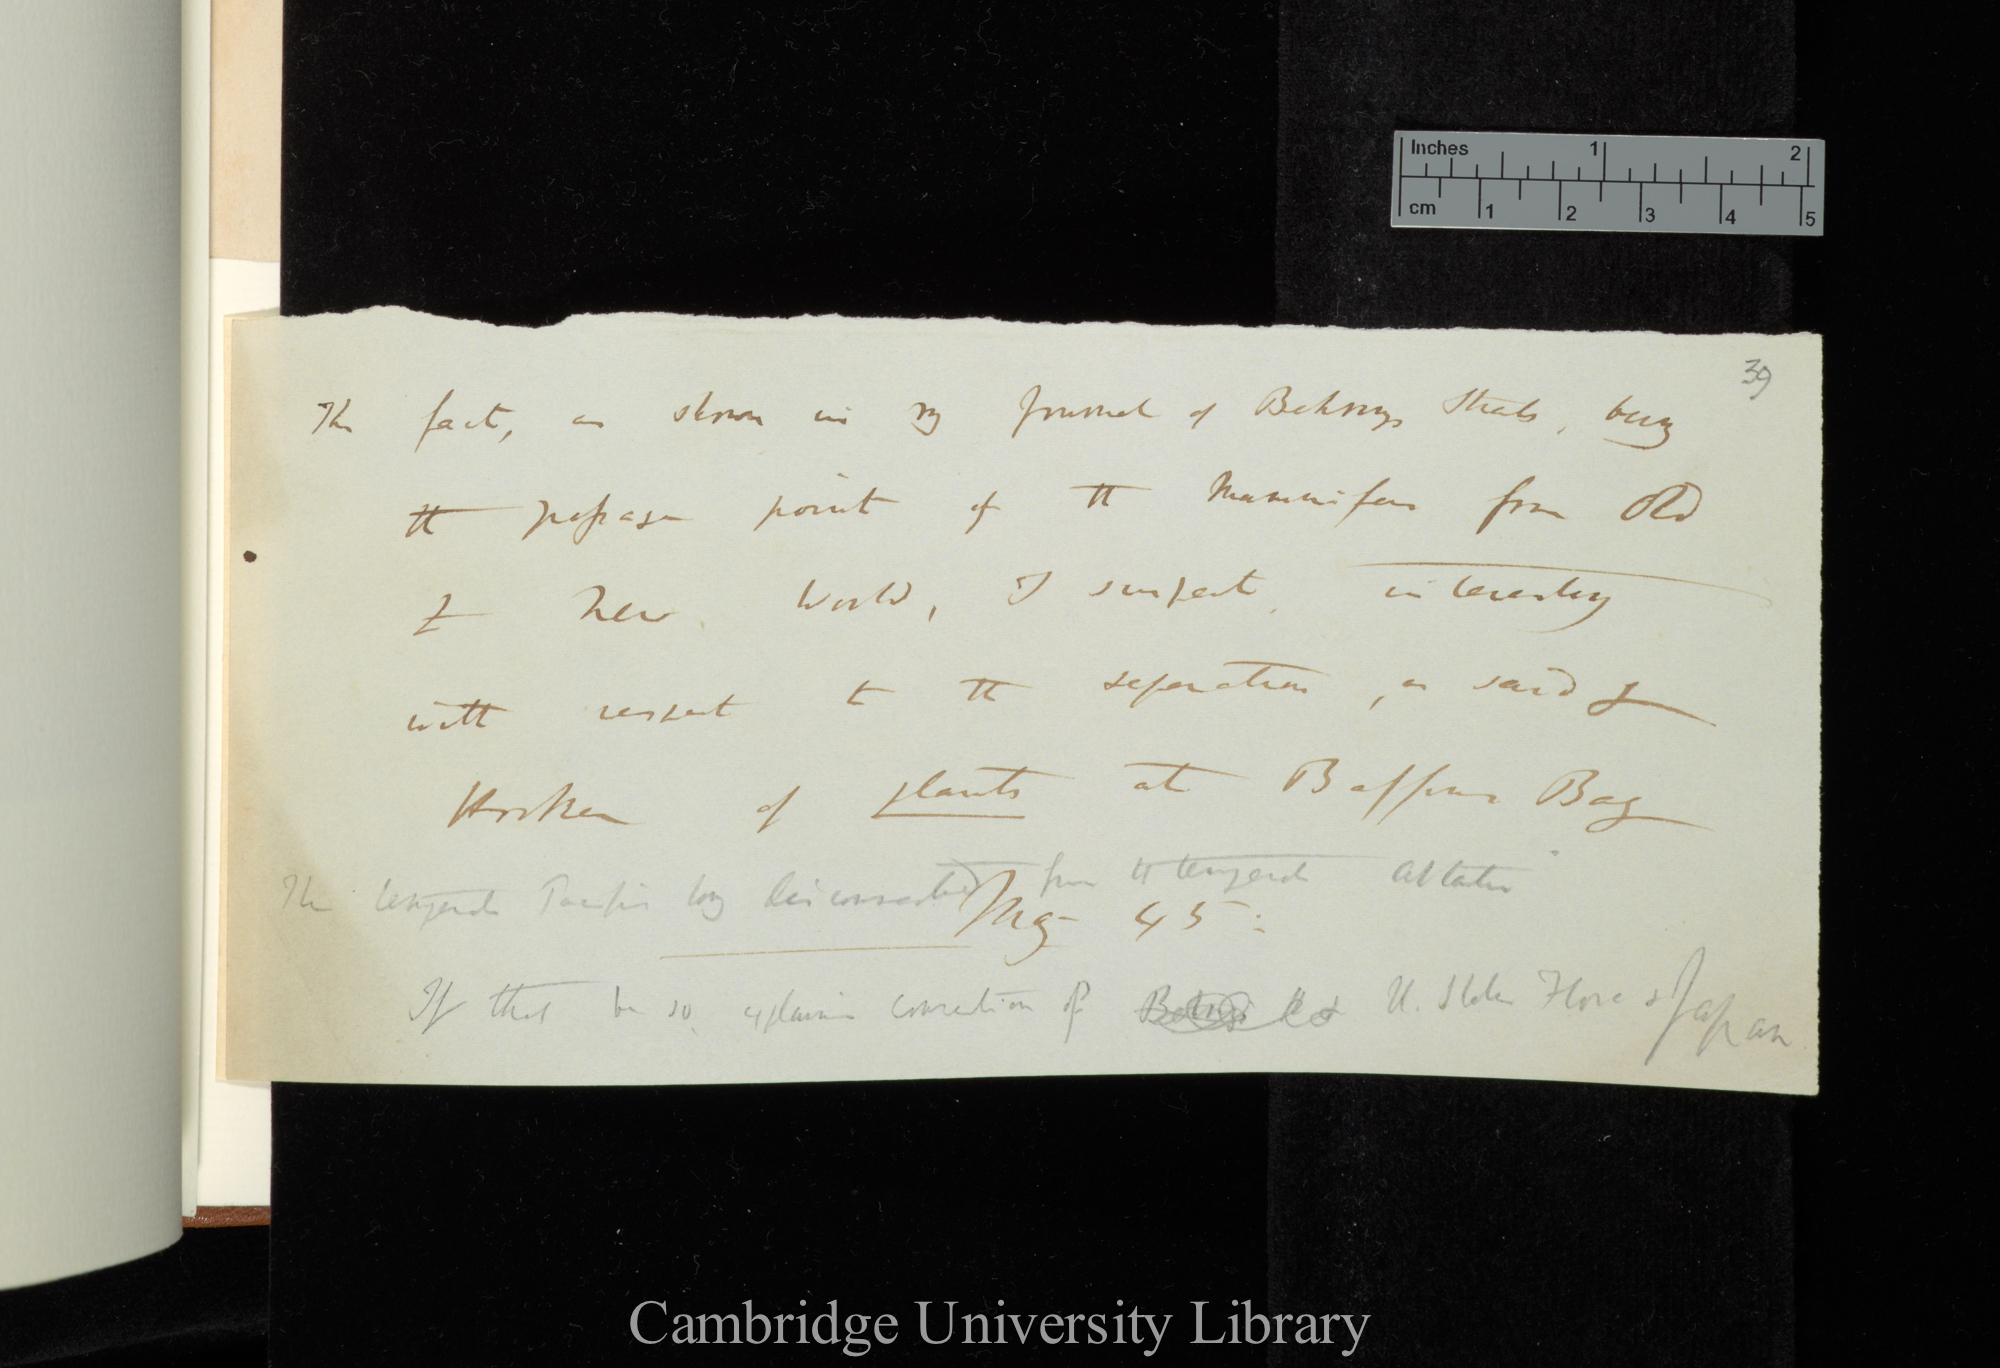 Inches 1 2
cm 1 2 3 4 5
39
The fact, as shown in my Journal of Behrings Straits, being
the passage point of the Mammifers from Old
& New World, I suspect, interesting
with respect to the separation, as said by
Hooker of plants at Baffins Bay
The temperate Pacific long disconnected from the temperate Atlantic
May 45:
If that be so, explains connection of U. States Flora & Japan
Cambridge University Library